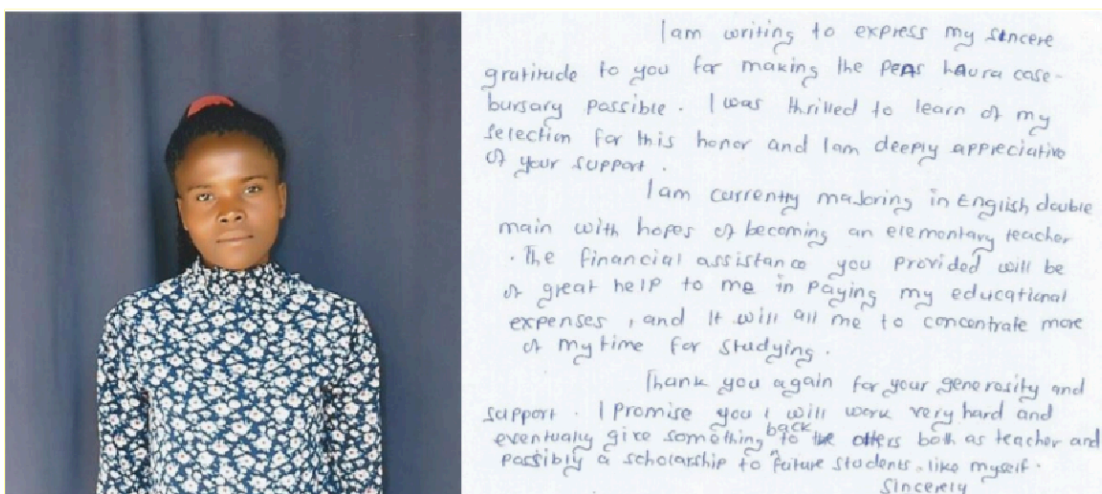 I am writing to express my sincere
gratitude to you for making the PEAS LAURA case-
bursary possible. I was thrilled to learn of my
selection for this honor and I am deeply appreciative
of your support.
I am currently majoring in English double
main with hopes of becoming an elementary teacher
. The financial assistance you provided will be
of great help to me in paying my educational
expenses, and it will all me to concentrate more
of my time for studying.
Thank you again for your generosity and
support. I promise you I will work very hard and
eventually give something back to the others both as teacher and
possibly a scholarship to future students, like myself.
Sincerely